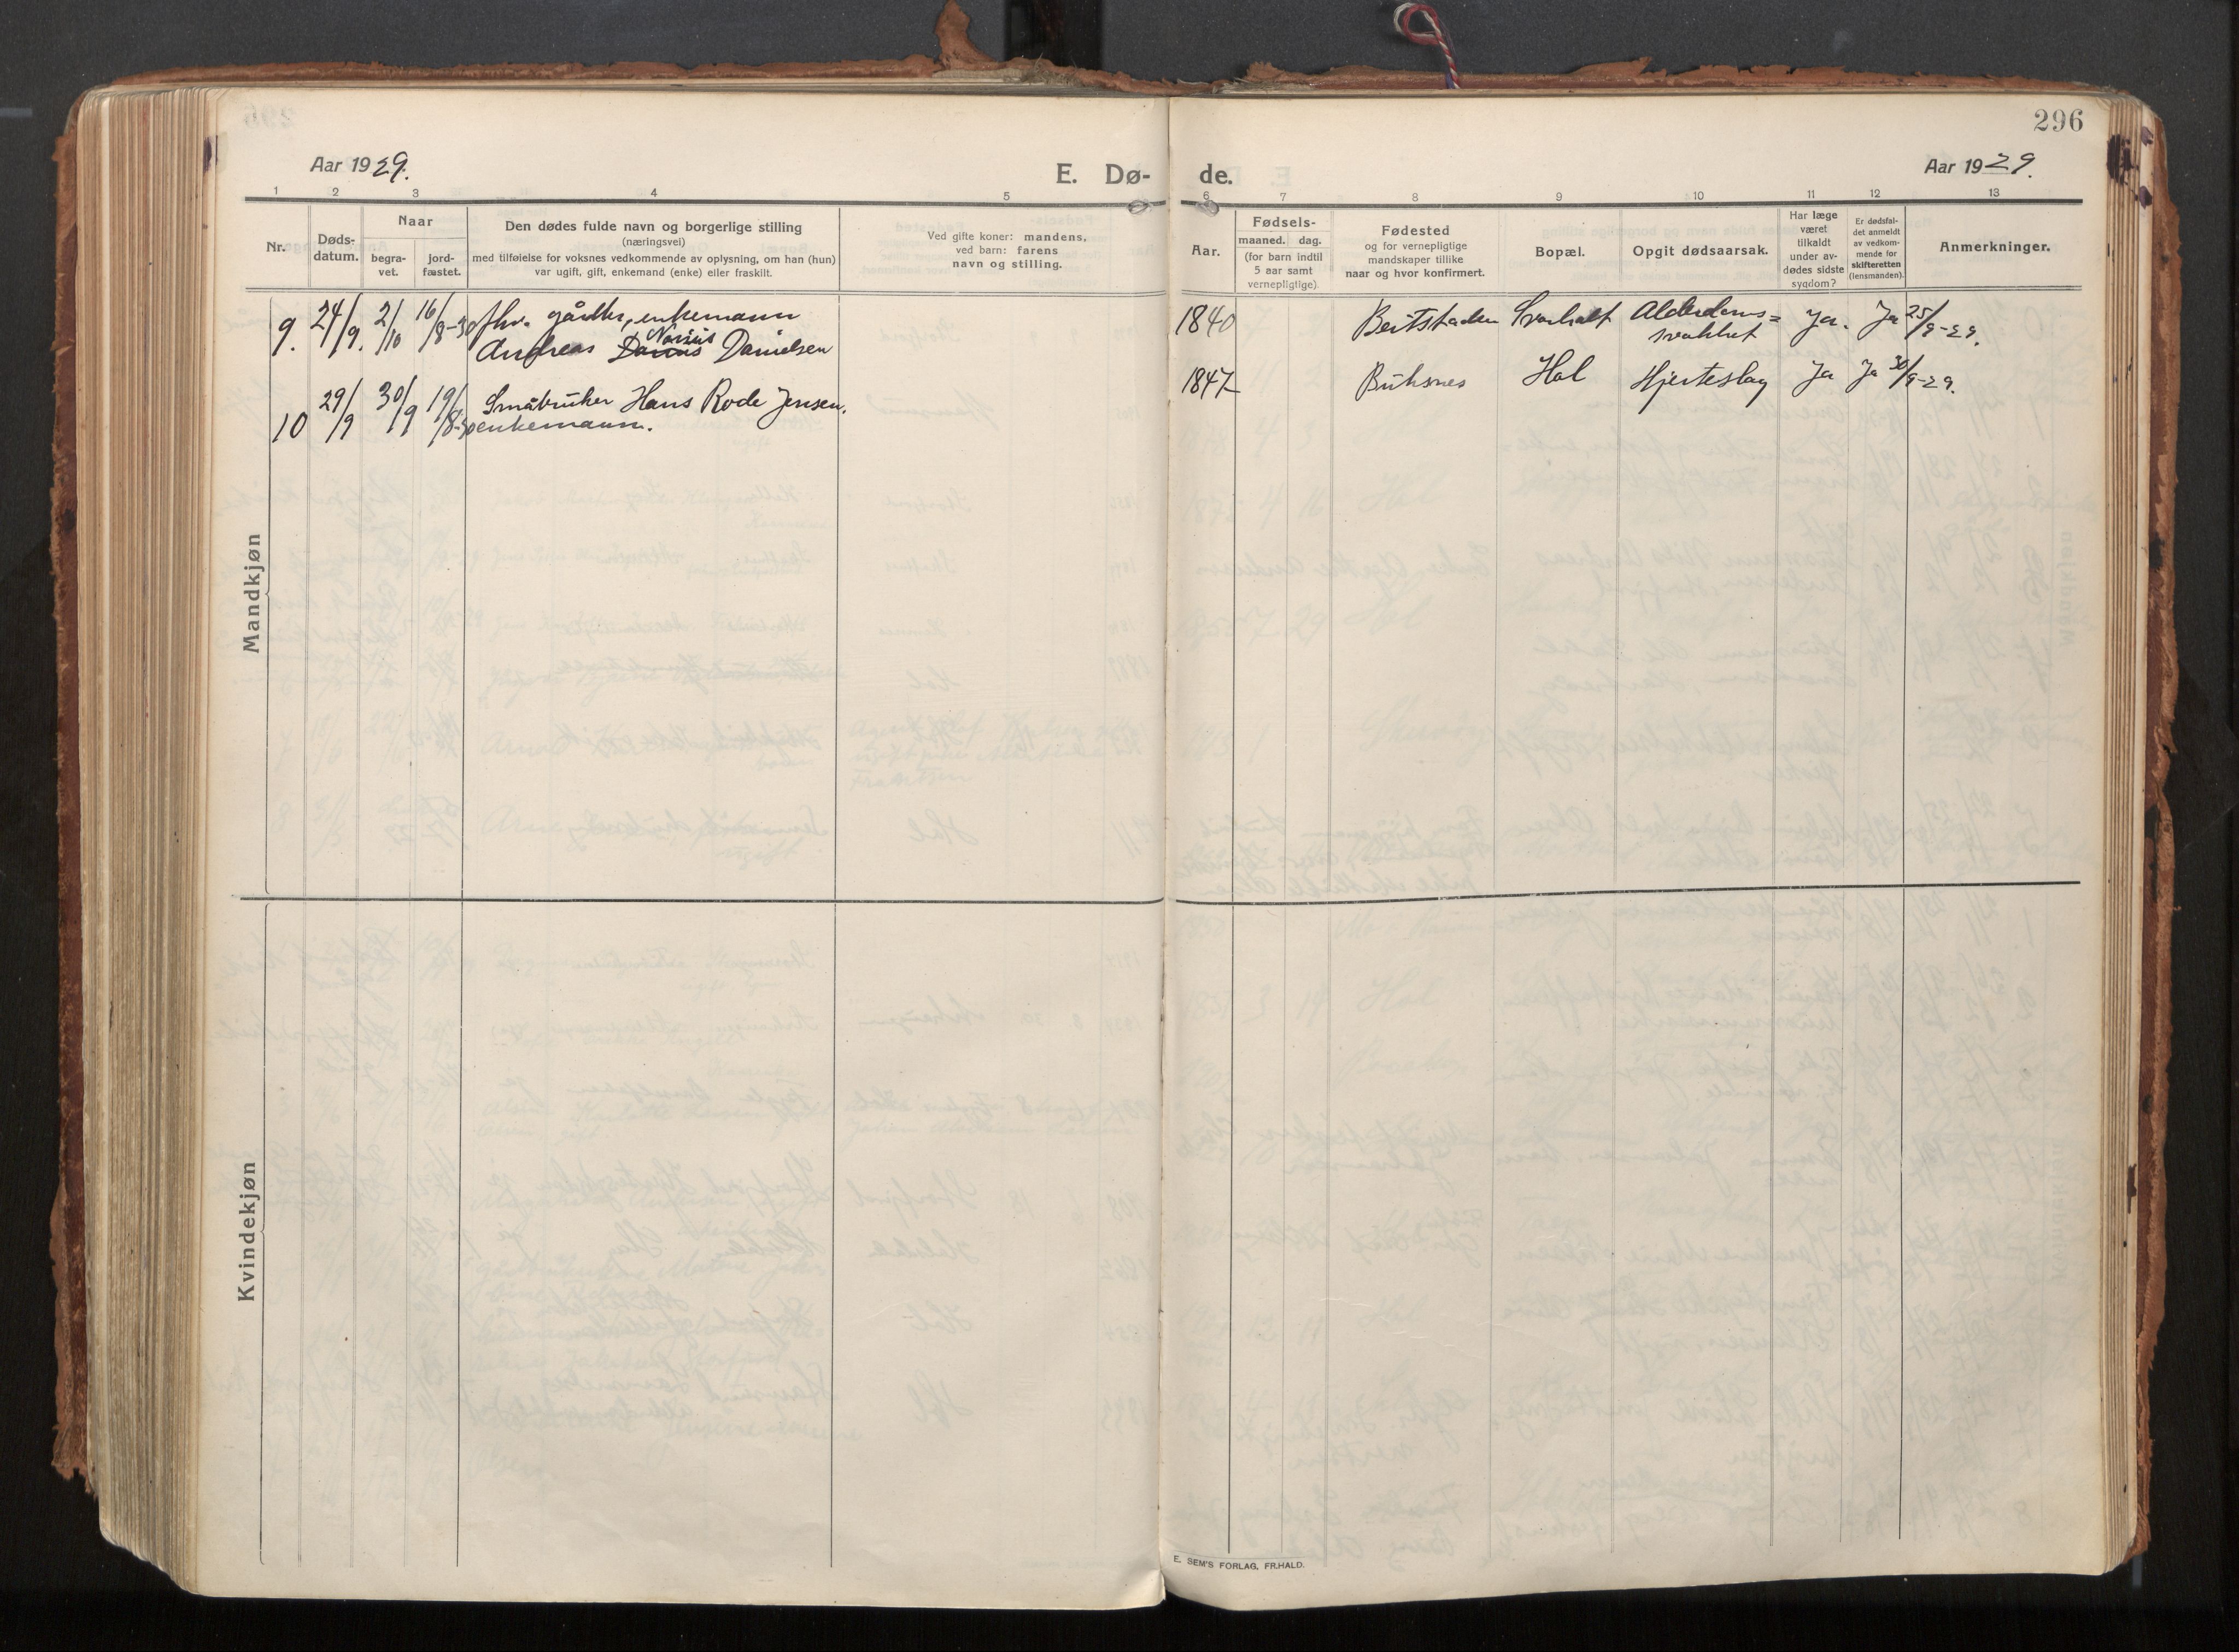 296
Aar 1929.
E. Dø-
de.
Aar 1929.
1 2 3 4 5 6 7 8 9 10 11 12 13
Nr.
Døds-
datum.
Naar
begra-
vet.
jord-
fæstet.
Den dødes fulde navn og borgerlige stilling
(næringsvei)
med tilføielse for voksnes vedkommende av oplysning, om han (hun)
var ugift, gift, enkemand (enke) eller fraskilt.
Ved gifte koner: mandens,
ved barn: farens
navn og stilling.
Aar.
Fødsels-
maaned. dag.
(for barn indtil
5 aar samt
vernepligtige).
Fødested
og for vernepligtige
mandskaper tillike
naar og hvor konfirmert.
Bopæl.
Opgit dødsaarsak.
Har læge
været
tilkaldt
under av-
dødes sidste
sygdom?
Er dødsfal-
det anmeldt
av vedkom-
mende for
skifteretten
(lensmanden).
Anmerkninger.
Mandkjøn
9. 24/9. 2/10 16/8-30 fhv. gårdbr, enkemann 1840 Beitstaden Svarholt Alderdoms= Ja. Ja 25/9-29.
Narius
Andreas Danielsen svakhet
10 29/9 30/9 19/8-30 Småbruker Hans Rode Jensen. 1847 Buksnes Hol Hjerteslag Ja Ja 30/9-29.
enkemann.
Kvindekjøn
E. SEM'S FORLAG, FR.HALD.